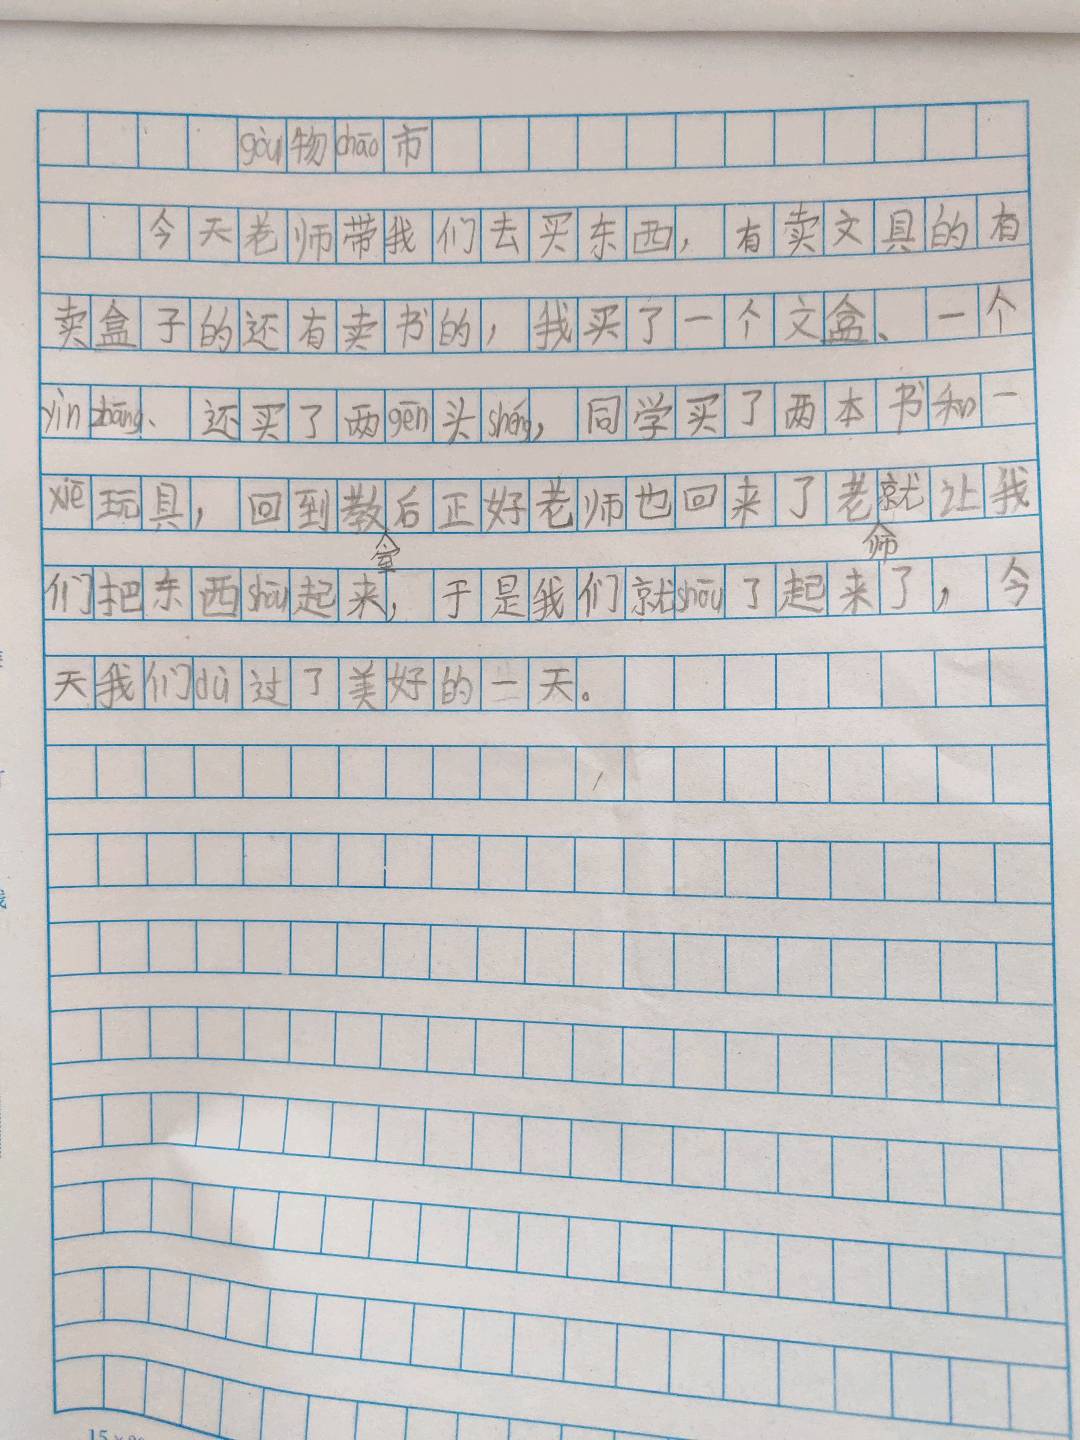 gòu物chāo市
今天老师带我们去买东西，有卖文具的有
卖盒子的还有卖书的，我买了一个文盒、一个
yìn zhāng、还买了两gēn头shéng，同学买了两本书和一
xiē玩具，回到教室后正好老师也回来了老师就让我
们把东西shōu起来，于是我们就shōu了起来了，今
天我们dù过了美好的一天。